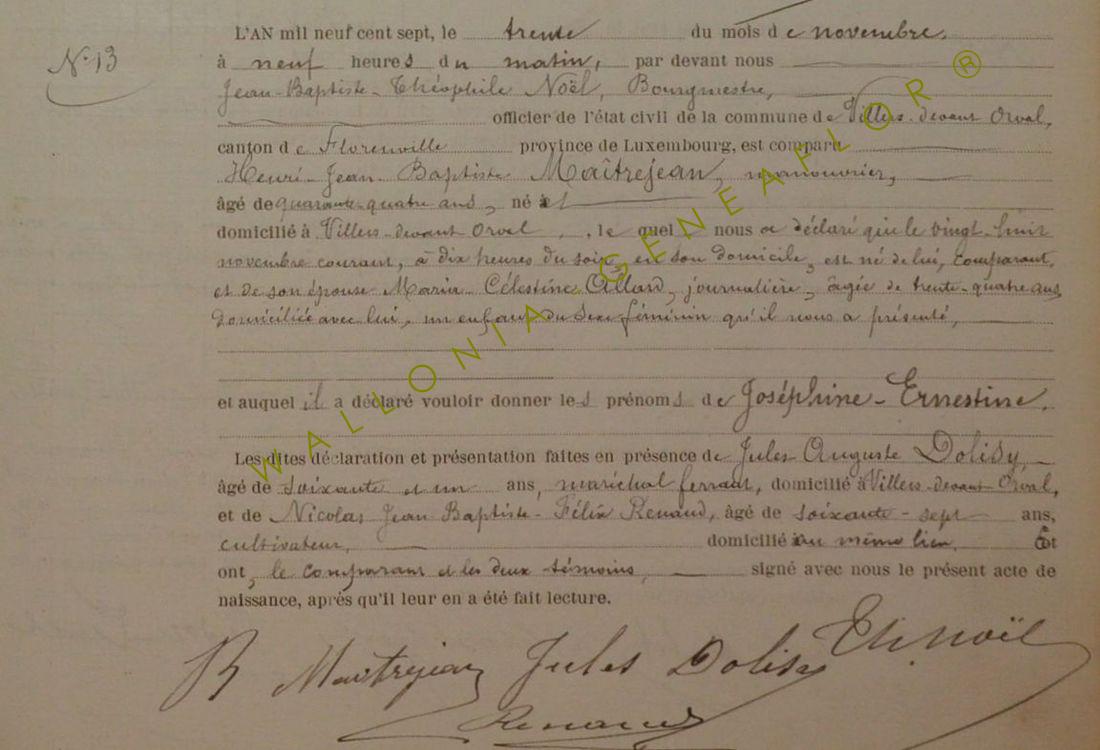 N° 13
L'AN mil neuf cent sept, le trente du mois de novembre,
à neuf heures du matin, par devant nous
Jean-Baptiste-Théophile Noël, Bourgmestre,
officier de l'état civil de la commune de Villers-devant Orval,
canton de Florenville province de Luxembourg, est comparu
Henri-Jean-Baptiste Maîtrejean, manouvrier,
âgé de quarante-quatre ans, né et
domicilié à Villers-devant Orval, le quel nous a déclaré que le vingt-huit
novembre courant, à dix heures du soir, en son domicile, est né de lui, comparant,
et de son épouse Maria-Célestine Allard, journalière, âgée de trente-quatre ans,
domiciliée avec lui, un enfant du sexe féminin qu'il nous a présenté,
et auquel il a déclaré vouloir donner les prénoms de Joséphine-Ernestine.
Les dites déclaration et présentation faites en présence de Jules Auguste Dolisy,
âgé de soixante et un ans, maréchal ferrant, domicilié à Villers-devant-Orval,
et de Nicolas Jean Baptiste-Félix Renaud, âgé de soixante-sept ans,
cultivateur, domicilié au même lieu. Et
ont, le comparant et les deux témoins, signé avec nous le présent acte de
naissance, après qu'il leur en a été fait lecture.
Maitrejean Jules Dolisy Th. Noël
Renaud
WALLONIA GENEAFLOR ®